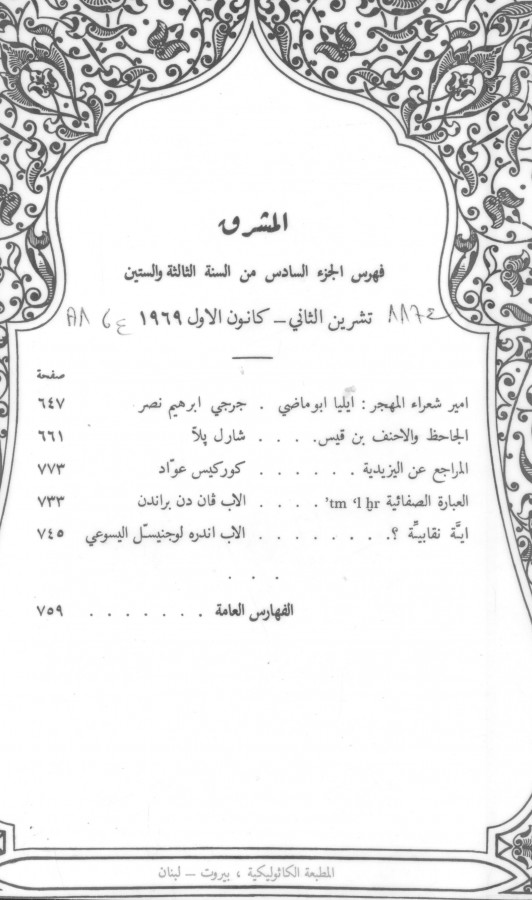 المشرق
فهرس الجزء السادس من السنة الثالثة والستين
تشرين الثاني – كانون الاول ١٩٦٩
صفحة
امير شعراء المهجر : ايليا ابوماضي . جرجي ابرهيم نصر ٦٤٧
الجاحظ والاحنف بن قيس. . . . . شارل پلاّ ٦٦١
المراجع عن اليزيدية . . . . . . كوركيس عوّاد ٧٧٣
العبارة الصفائية tm ʿl ḫr' . . . . الاب ڤان دن براندن ٧٣٣
ايَّة نقابيَّة ؟. . . . . . . . الاب اندره لوجنيسّل اليسوعي ٧٤٥
. . .
الفهارس العامة . . . . . . . ٧٥٩
المطبعة الكاثوليكية ، بيروت – لبنان